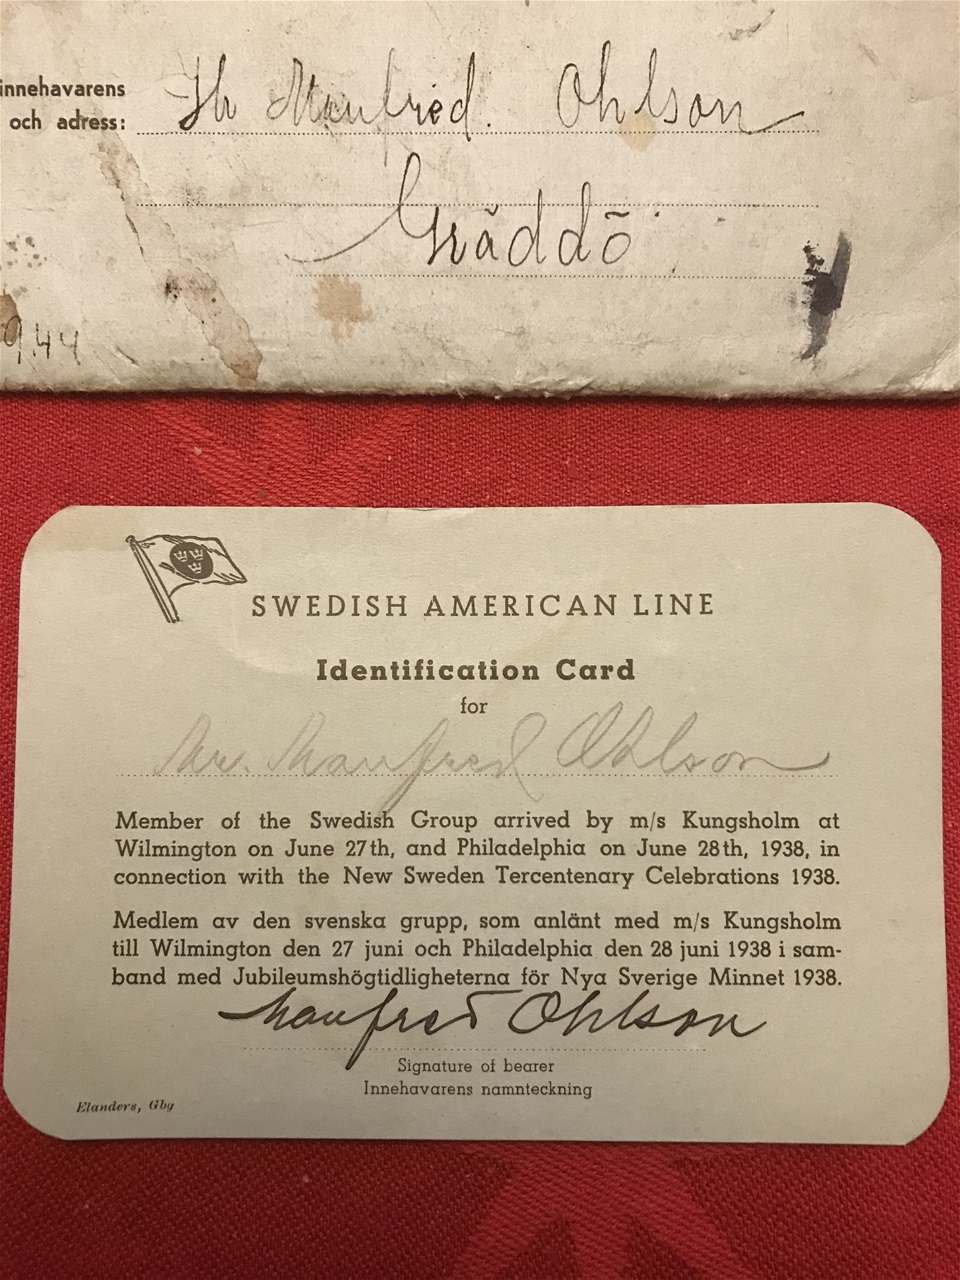 innehavarens
och adress: Th Manfred. Ohlson
Gräddö
9.44
SWEDISH AMERICAN LINE
Identification Card
for
Mr. Manfred Ohlson
Member of the Swedish Group arrived by m/s Kungsholm at
Wilmington on June 27th, and Philadelphia on June 28th, 1938, in
connection with the New Sweden Tercentenary Celebrations 1938.
Medlem av den svenska grupp, som anlänt med m/s Kungsholm
till Wilmington den 27 juni och Philadelphia den 28 juni 1938 i sam-
band med Jubileumshögtidligheterna för Nya Sverige Minnet 1938.
Manfred Ohlson
Signature of bearer
Innehavarens namnteckning
Elanders, Gbg